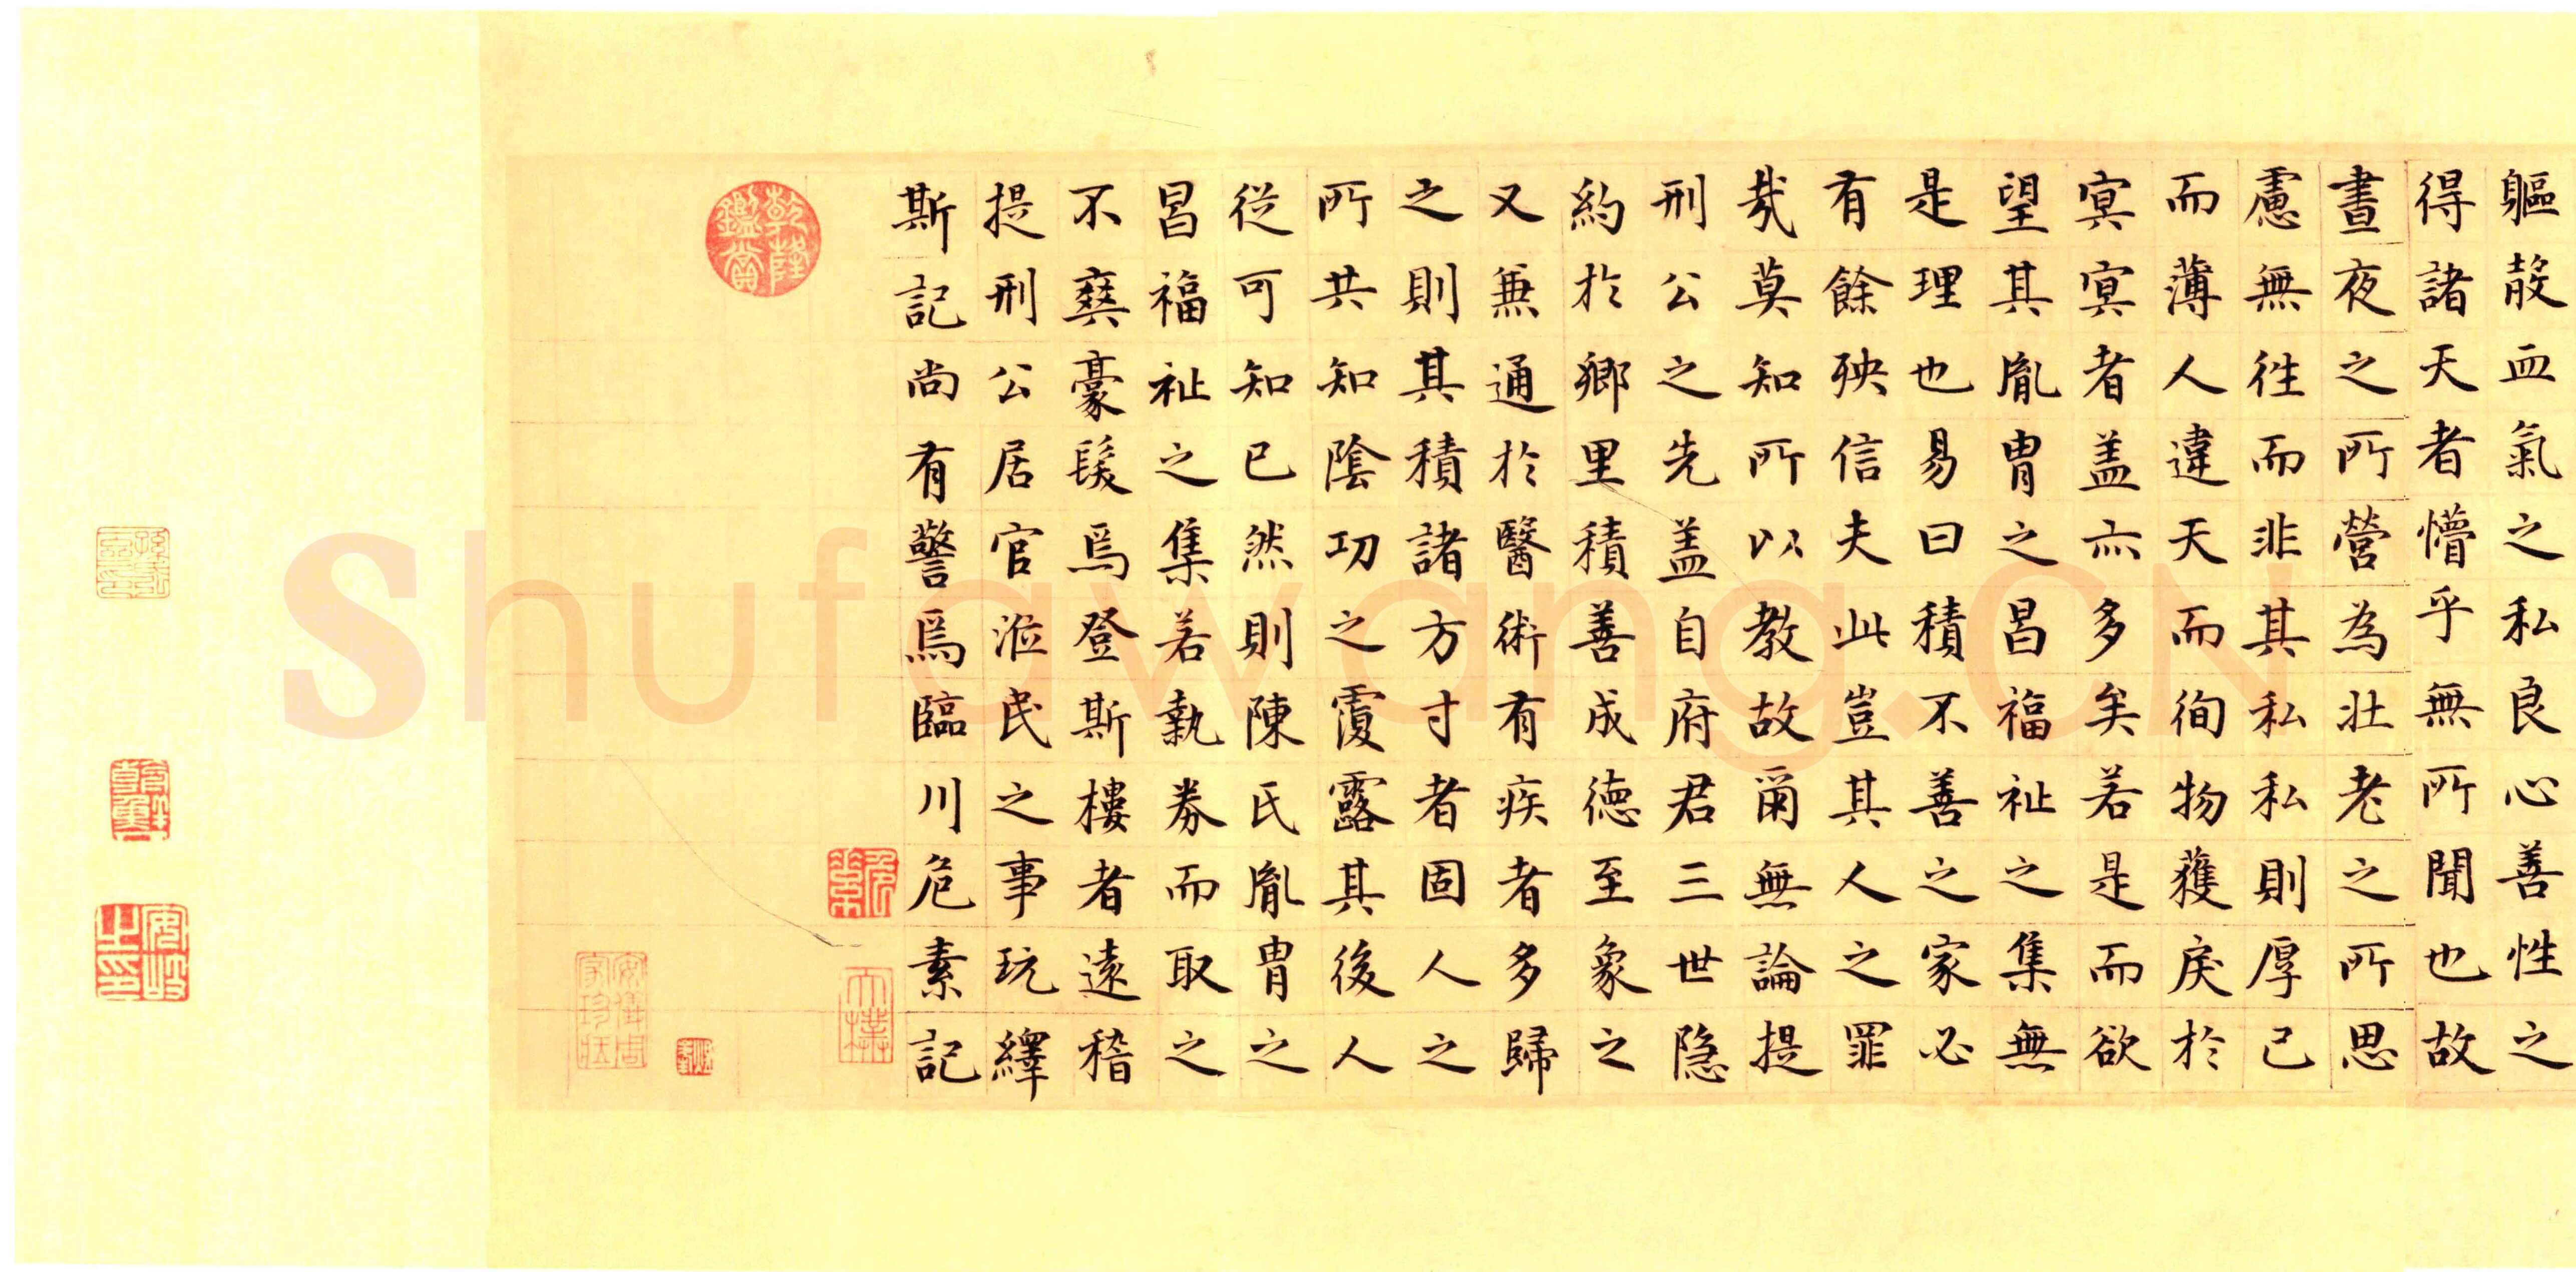 軀殽血氣之私良心善性之
得諸天者懵乎無所聞也故
晝夜之所營為壯老之所思
慮無徃而非其私私則厚己
而薄人違天而徇物獲戾於
冥冥者盖亦多矣若是而欲
望其胤胄之昌福祉之集無
是理也易曰積不善之家必
有餘殃信夫此豈其人之罪
㢤莫知所以教故爾無論提
刑公之先盖自府君三世隐
約於鄉里積善成德至象之
又兼通於醫術有疾者多歸
之則其積諸方寸者固人之
所共知陰功之霞露其後人
従可知已然則陳氏胤胄之
昌福祉之集若執券而取之
不爽豪髮焉登斯樓者遠稽
提刑公居官涖民之事玩繹
斯記尚有警焉臨川危素記
乾隆鑑賞
Shufawang.CN